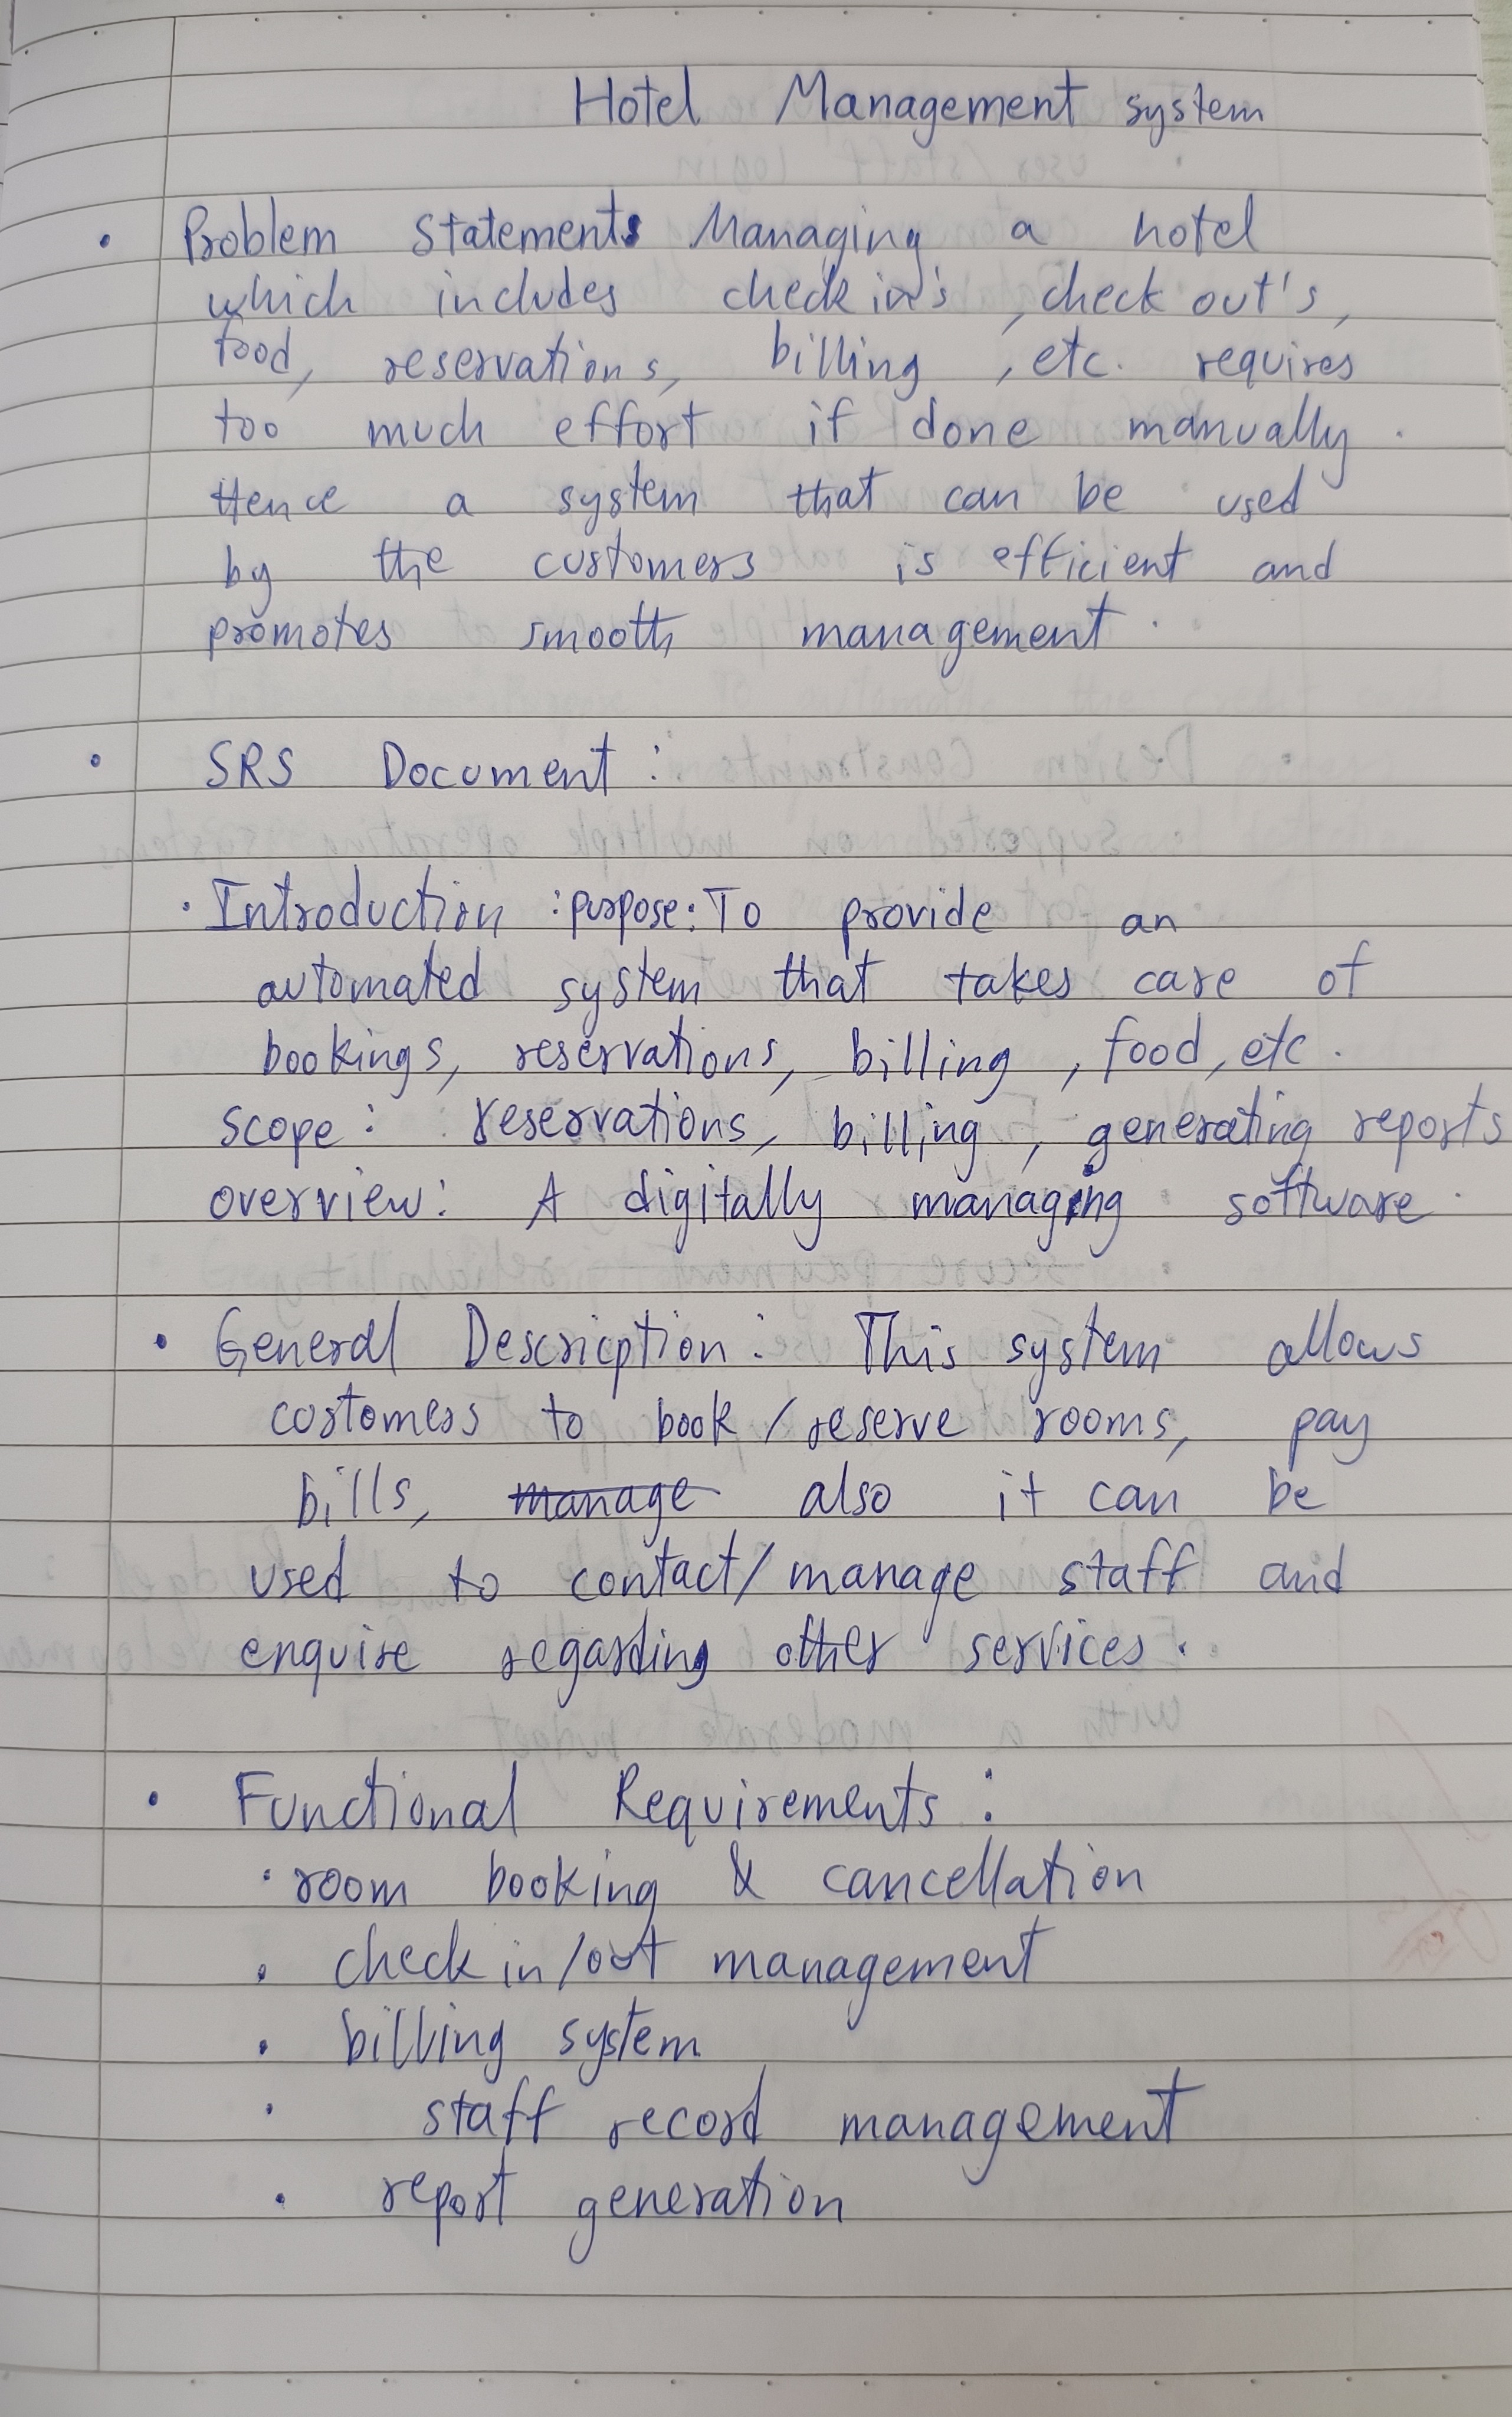 Hotel Management system
• Problem Statements Managing a hotel
which includes check in's, check out's,
food, reservations, billing, etc. requires
too much effort if done manually.
Hence a system that can be used
by the customers is efficient and
promotes smooth management.
• SRS Document:
• Introduction: purpose: To provide an
automated system that takes care of
bookings, reservations, billing, food, etc.
scope: reservations, billing, generating reports
overview: A digitally managing software.
• General Descricption: This system allows
customers to book/reserve rooms, pay
bills, manage also it can be
used to contact/manage staff and
enquire regarding other services.
• Functional Requirements:
• room booking & cancellation
• check in/out management
• billing system
• staff record management
• report generation